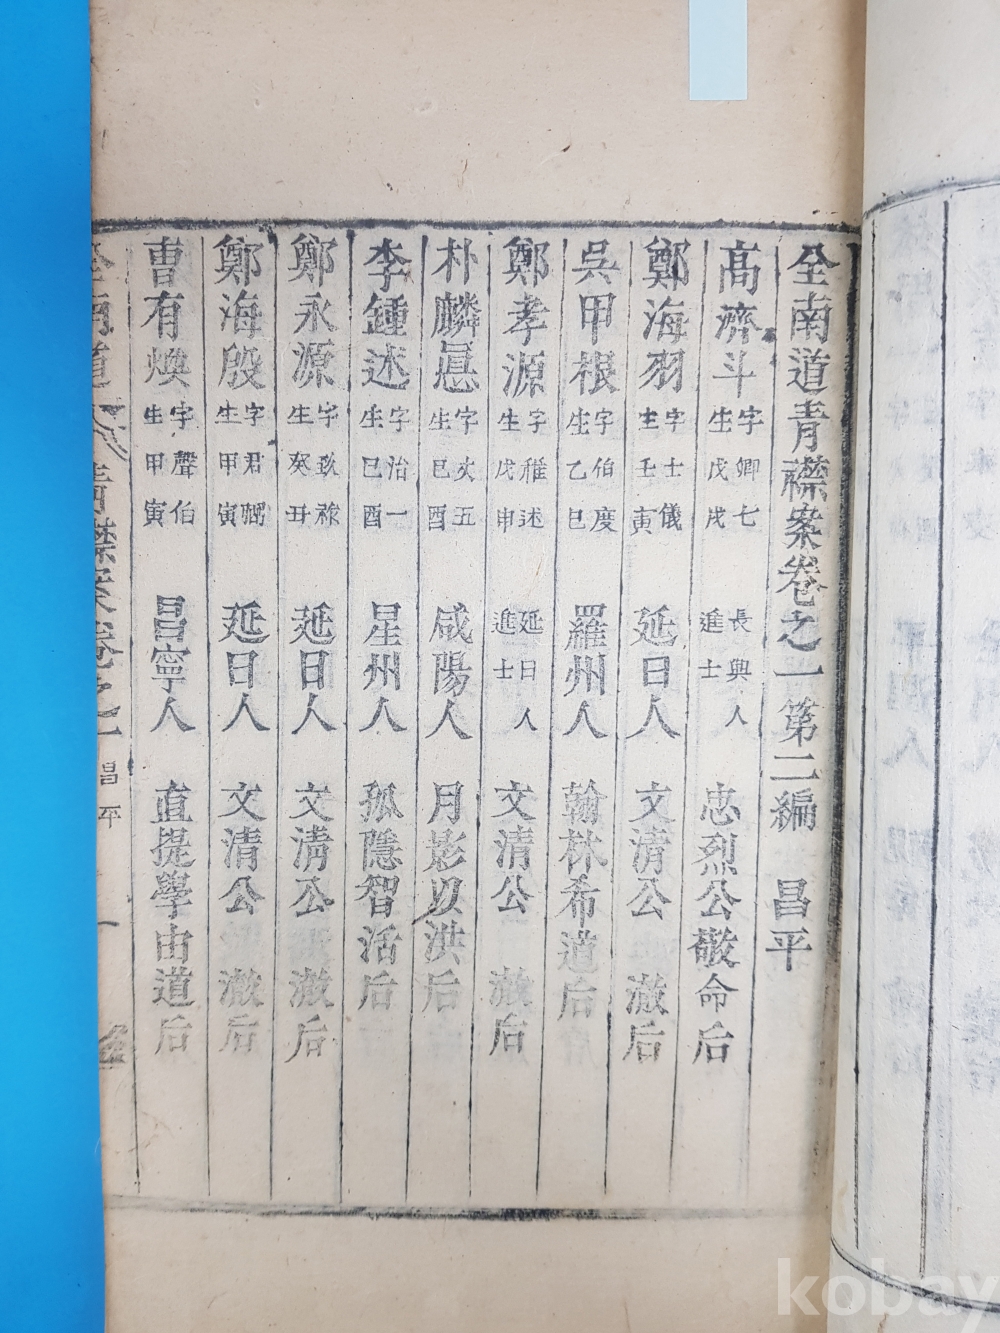 全南道青襟案卷之一第二編 昌平
高濟斗 字卿七 生戊戌 長興人 進士 忠烈公敬命后
鄭海羽 字士儀 生壬寅 延日人 文清公 澈后
吳甲根 字伯度 生乙巳 羅州人 翰林希道后
鄭孝源 字稚述 生戊申 延日人 進士 文清公 澈后
朴麟 字文五 生己酉 咸陽人 月影以洪后
李鍾述 字治一 生己酉 星州人 孤隱智活后
鄭永源 字 生癸丑 延日人 文清公 澈后
鄭海殷 字君 生甲寅 延日人 文清公 澈后
曹有煥 字聲伯 生甲寅 昌寧人 直提學由道后
全南道 青襟案卷之一 昌平 一
kobay